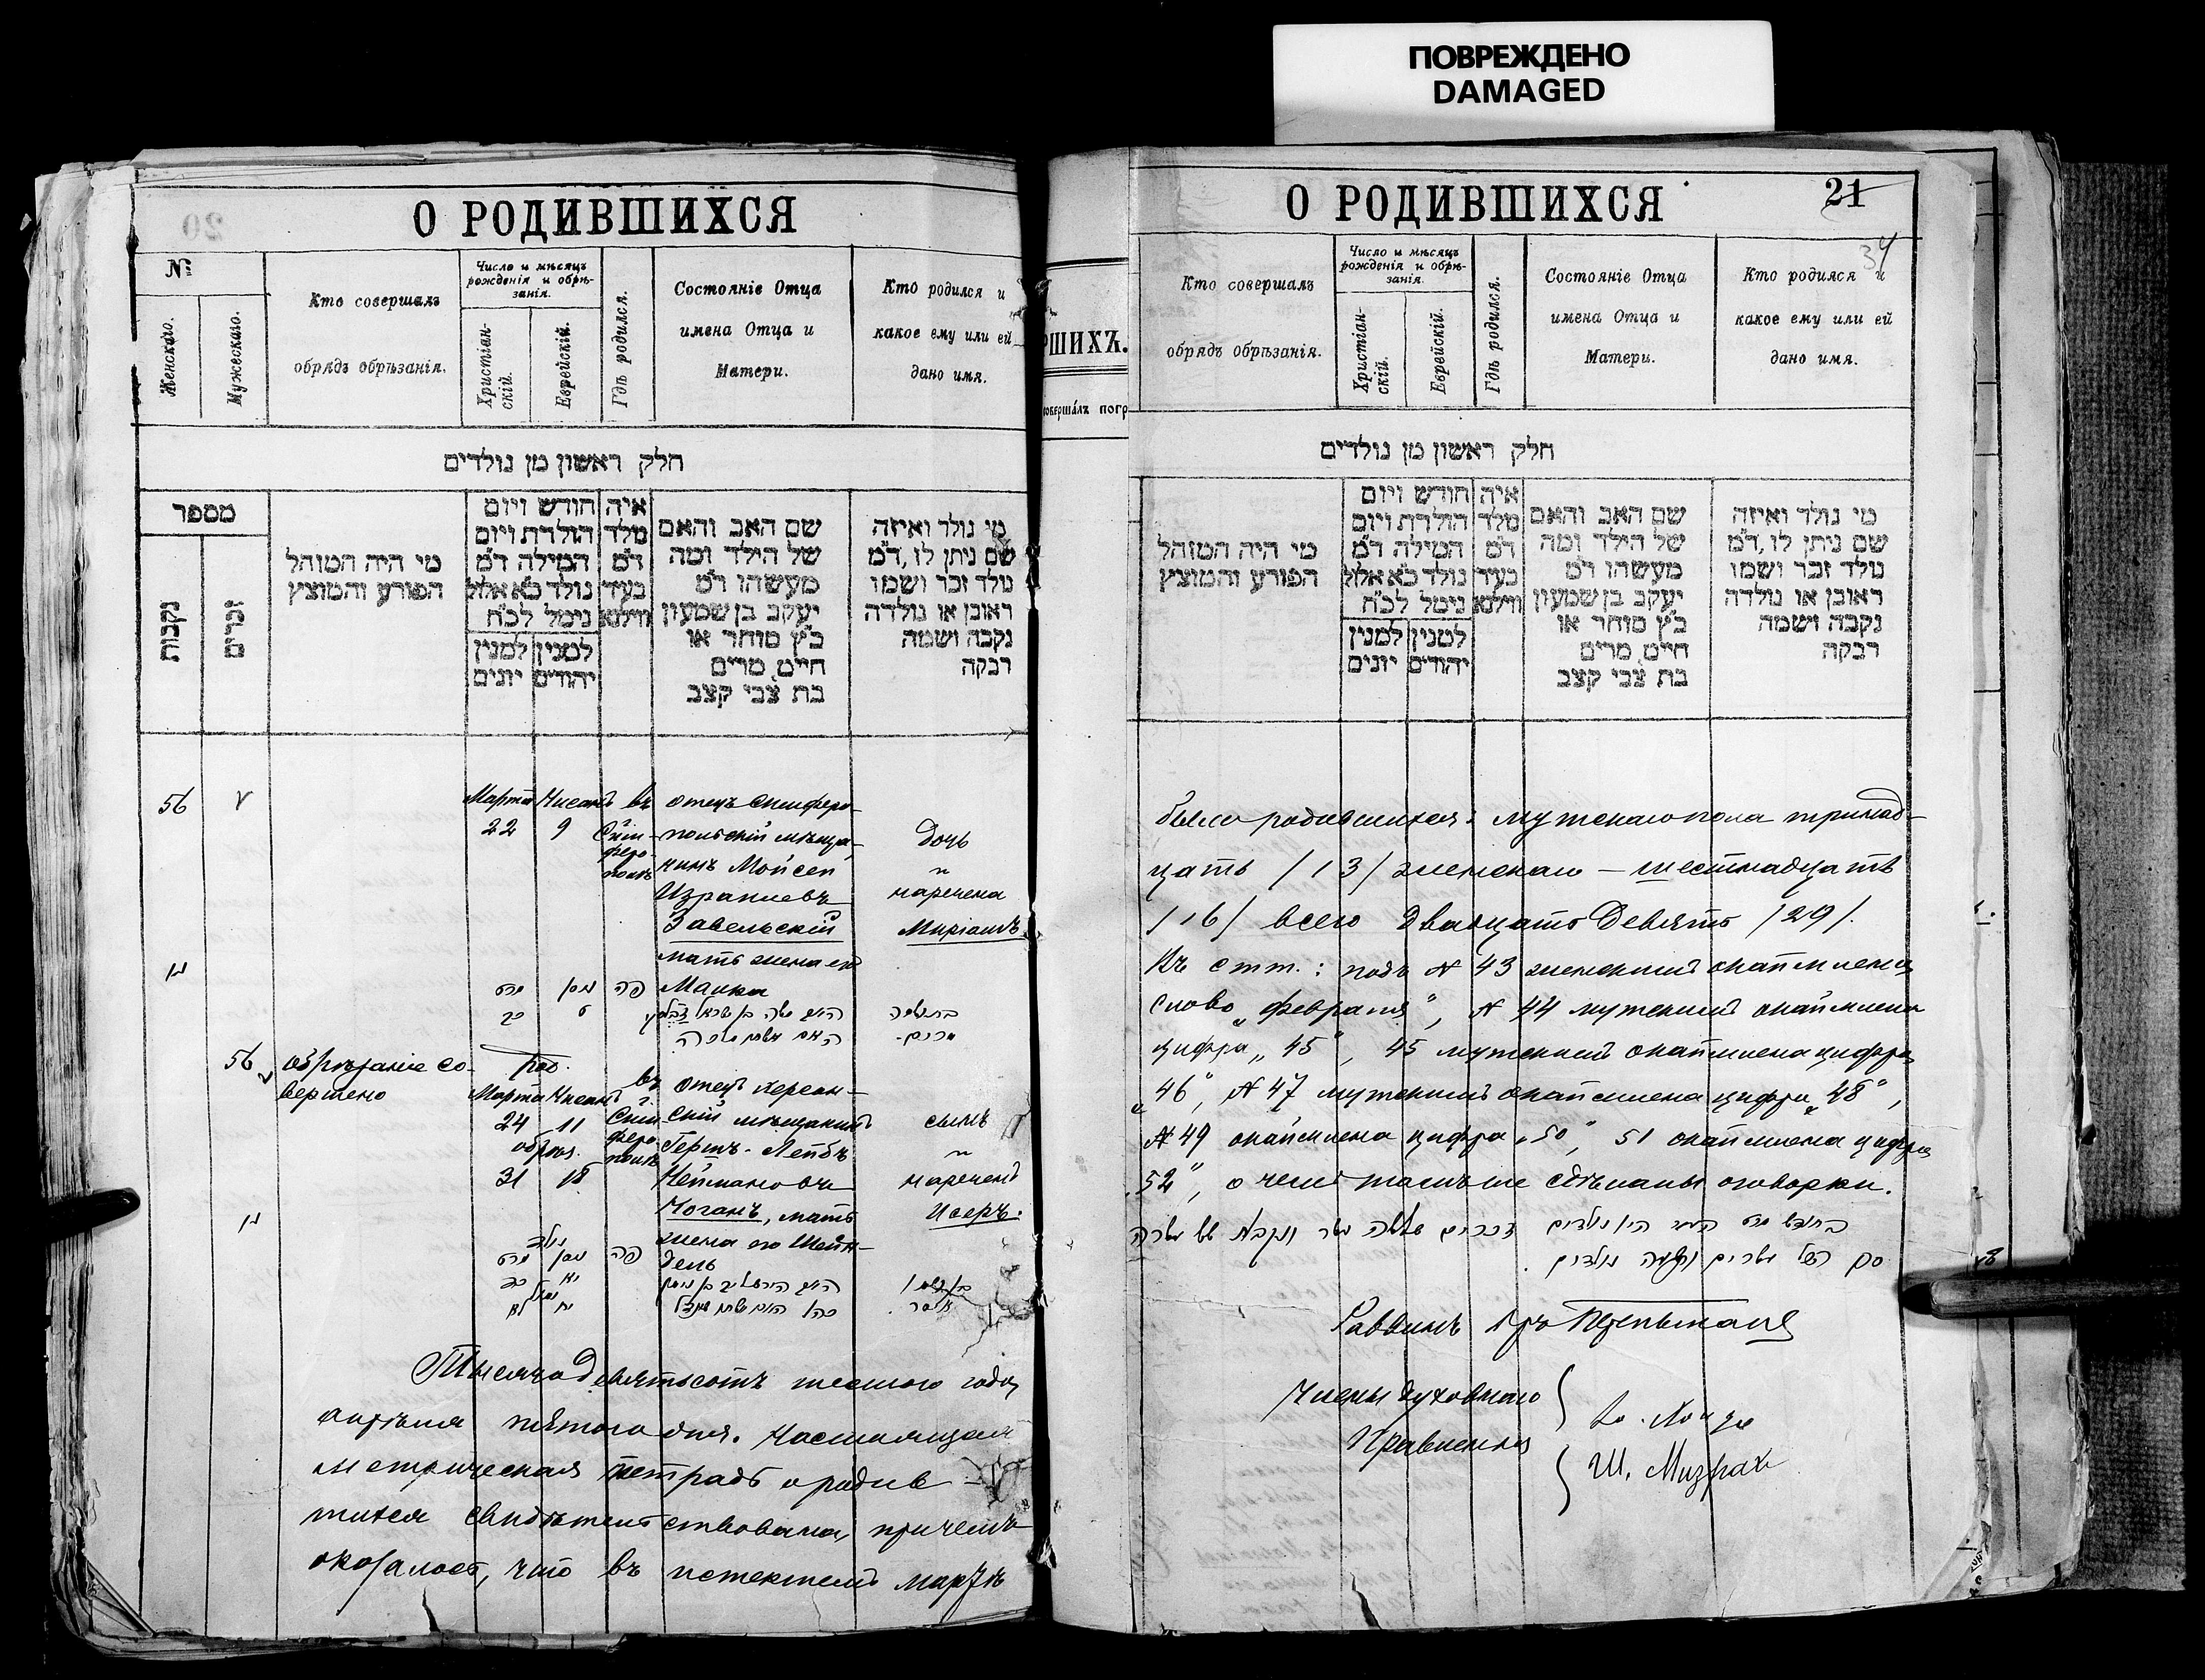 ПОВРЕЖДЕНО
DAMAGED
О РОДИВШИХСЯ
№
Женскаго.
Мужескаго.
Кто совершалъ
обрядъ обрѣзанія.
Число и мѣсяцъ
рожденія и обрѣ-
занія.
Христіан-
скій.
Еврейскій.
Гдѣ родился.
Состояніе Отца
имена Отца и
Матери.
Кто родился и
какое ему или ей
дано имя.
חלק ראשון מן נולדים
מספר
נקבות
זכרים
מי היה המוהל
הפורע והמוצץ
חודש ויום
הולדת ויום
המילה ד״מ
נולד כ״א אלול
נימל לכ״ח
למנין למנין
יהודים יונים
איה
מלד
ד״מ
בעיר
ווילנא
שם האב והאם
של הילד ומה
מעשהו ד״מ
יעקב בן שמעון
כ״ץ סוחר או
חייט מרים
בת צבי קצב
מי נולד ואיזה
שם ניתן לו, ד״מ
נולד זכר ושמו
ראובן או נולדה
נקבה ושמה
רבקה
56
Марта Нисанъ въ отецъ Симферо-
22 9 Сим- польскій мѣща- Дочь
феро- нинъ Мойсей
поль
Израилевъ наречена
Завельскій Миріамъ
мать жена его
מרט ניסן פה Малка
56 обрѣзаніе со- род.
вершено Марта Нисанъ въ отецъ херсон-
24 11 Сим- скій мѣщанинъ сынъ
обрѣз. феро- Гершъ-Лейбъ
поль
31 18 Нейманъ нареченъ
Коганъ, мать Исеръ.
жена его Шейн-
дель
מרט ניסן פה
Тысяча девятьсотъ шестого года
апрѣля пятого дня. Настоящая
метрическая тетрадь о родив-
шихся свидѣтельствована, причемъ
оказалось, что въ истекшемъ мартѣ
ШИХЪ.
совершалъ погр
О РОДИВШИХСЯ
21
34
Кто совершалъ
обрядъ обрѣзанія.
Число и мѣсяцъ
рожденія и обрѣ-
занія.
Христіан-
скій.
Еврейскій.
Гдѣ родился.
Состояніе Отца
имена Отца и
Матери.
Кто родился и
какое ему или ей
дано имя.
חלק ראשון מן נולדים
מי היה המוהל
הפורע והמוצץ
חודש ויום
הולדת ויום
המילה ד״מ
נולד כ״א אלול
נימל לכ״ח
למנין למנין
יהודים יונים
איה
מלד
ד״מ
בעיר
ווילנא
שם האב והאם
של הילד ומה
מעשהו ד״מ
יעקב בן שמעון
כ״ץ סוחר או
חייט מרים
בת צבי קצב
מי נולד ואיזה
שם ניתן לו, ד״מ
נולד זכר ושמו
ראובן או נולדה
נקבה ושמה
רבקה
было родившихся: мужскаго пола тринад-
цать /13/ женскаго — шестнадцать
/16/ всего двадцать девять /29/.
Къ стт.: подъ № 43 женскимъ окаймлена
слово „февраля", № 44 мужскимъ окаймлена
цифра „45", 45 мужскимъ окаймлена цифра
„46", № 47 мужскимъ окаймлена цифра „48",
№ 49 окаймлена цифра „50", 51 окаймлена цифра
„52", о чемъ тамъ же сдѣланы оговорки.
Раввинъ
Члены духовнаго
Правленія
Ш. Мизрах